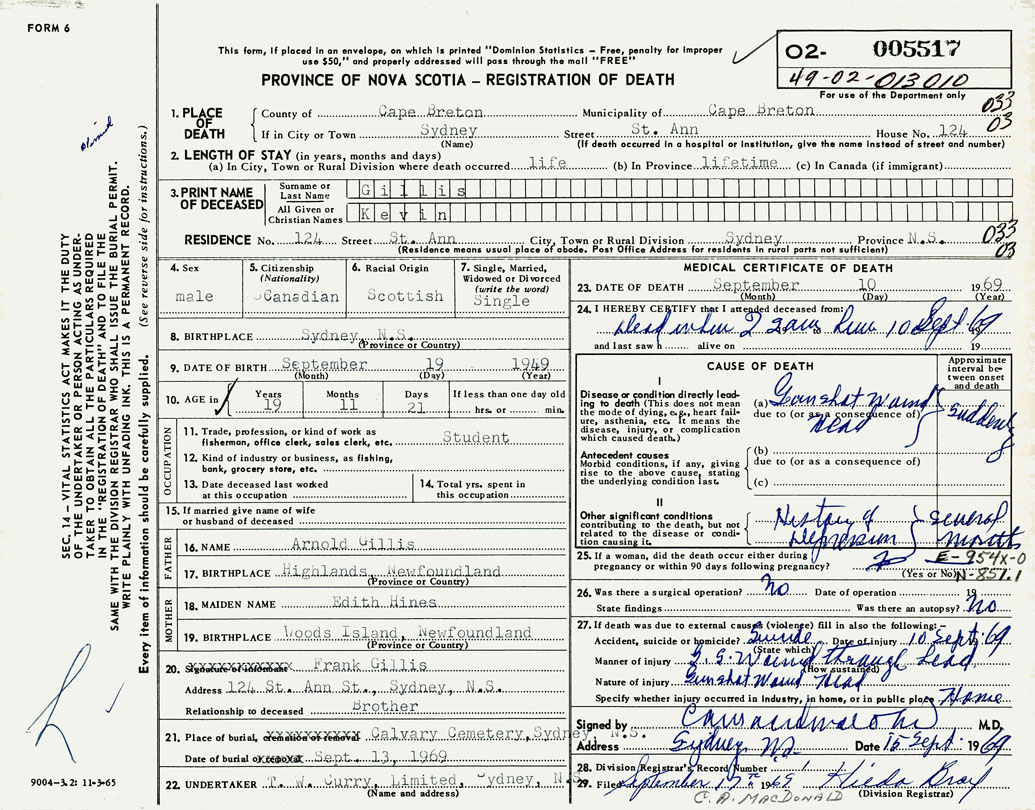 FORM 6
This form, if placed in an envelope, on which is printed "Dominion Statistics – Free, penalty for improper
use $50," and properly addressed will pass through the mail "FREE"
PROVINCE OF NOVA SCOTIA – REGISTRATION OF DEATH
02- 005517
49-02-013010
For use of the Department only
033
03
1. PLACE OF DEATH
County of Cape Breton Municipality of Cape Breton
If in City or Town Sydney Street St. Ann House No. 124
(Name) (If death occurred in a hospital or institution, give the name instead of street and number)
2. LENGTH OF STAY (in years, months and days)
(a) In City, Town or Rural Division where death occurred life (b) In Province lifetime (c) In Canada (if immigrant)
3. PRINT NAME OF DECEASED
Surname or Last Name Gillis
All Given or Christian Names Kevin
RESIDENCE No. 124 Street St. Ann City, Town or Rural Division Sydney Province N.S.
(Residence means usual place of abode. Post Office Address for residents in rural parts not sufficient)
033
03
4. Sex
male
5. Citizenship (Nationality)
Canadian
6. Racial Origin
Scottish
7. Single, Married, Widowed or Divorced (write the word)
Single
8. BIRTHPLACE Sydney, N.S.
(Province or Country)
9. DATE OF BIRTH September 19 1949
(Month) (Day) (Year)
10. AGE in
Years Months Days If less than one day old
19 11 21 hrs. or min.
OCCUPATION
11. Trade, profession, or kind of work as
fisherman, office clerk, sales clerk, etc. Student
12. Kind of industry or business, as fishing,
bank, grocery store, etc.
13. Date deceased last worked
at this occupation
14. Total yrs. spent in
this occupation
15. If married give name of wife
or husband of deceased
FATHER
16. NAME Arnold Gillis
17. BIRTHPLACE Highlands, Newfoundland
(Province or Country)
MOTHER
18. MAIDEN NAME Edith Hines
19. BIRTHPLACE Woods Island, Newfoundland
(Province or Country)
20. Signature of informant Frank Gillis
Address 124 St. Ann St., Sydney, N.S.
Relationship to deceased Brother
21. Place of burial, cremation or removal Calvary Cemetery, Sydney, N.S.
Date of burial or removal Sept. 13, 1969
22. UNDERTAKER T. W. Curry, Limited, Sydney, N.S.
(Name and address)
MEDICAL CERTIFICATE OF DEATH
23. DATE OF DEATH September 10 1969
(Month) (Day) (Year)
24. I HEREBY CERTIFY that I attended deceased from:
Dead when I saw him 10 Sept 69
19
and last saw h alive on 19
CAUSE OF DEATH
Approximate interval between onset and death
I
Disease or condition directly leading to death (This does not mean
the mode of dying, e.g., heart failure, asthenia, etc. It means the
disease, injury, or complication
which caused death.)
(a) Gunshot Wound
due to (or as a consequence of)
Head
Suddenly
Antecedent causes
Morbid conditions, if any, giving
rise to the above cause, stating
the underlying condition last.
(b)
due to (or as a consequence of)
(c)
II
Other significant conditions
contributing to the death, but not
related to the disease or condition causing it.
History of
Depression
Several
months
25. If a woman, did the death occur either during
pregnancy or within 90 days following pregnancy?
(Yes or No)
E-954X-0
N-851.1
26. Was there a surgical operation? No Date of operation 19
State findings Was there an autopsy? No
27. If death was due to external causes (violence) fill in also the following:-
Accident, suicide or homicide? Suicide Date of injury 10 Sept. 69
(State which)
Manner of injury G.S. Wound through head
(How sustained)
Nature of injury Gunshot Wound Head
Specify whether injury occurred in industry, in home, or in public place Home
Signed by M.D.
Address Sydney NS Date 15 Sept. 1969
28. Division Registrar's Record Number
29. Filed September 17th 1969
(Division Registrar)
C. A. MACDONALD
SEC. 14 – VITAL STATISTICS ACT MAKES IT THE DUTY
OF THE UNDERTAKER OR PERSON ACTING AS UNDER-
TAKER TO OBTAIN ALL THE PARTICULARS REQUIRED
IN THE "REGISTRATION OF DEATH" AND TO FILE THE
SAME WITH THE DIVISION REGISTRAR WHO SHALL ISSUE THE BURIAL PERMIT.
WRITE PLAINLY WITH UNFADING INK. THIS IS A PERMANENT RECORD.
Every item of information should be carefully supplied. (See reverse side for instructions.)
9004-3.2: 11-3-65